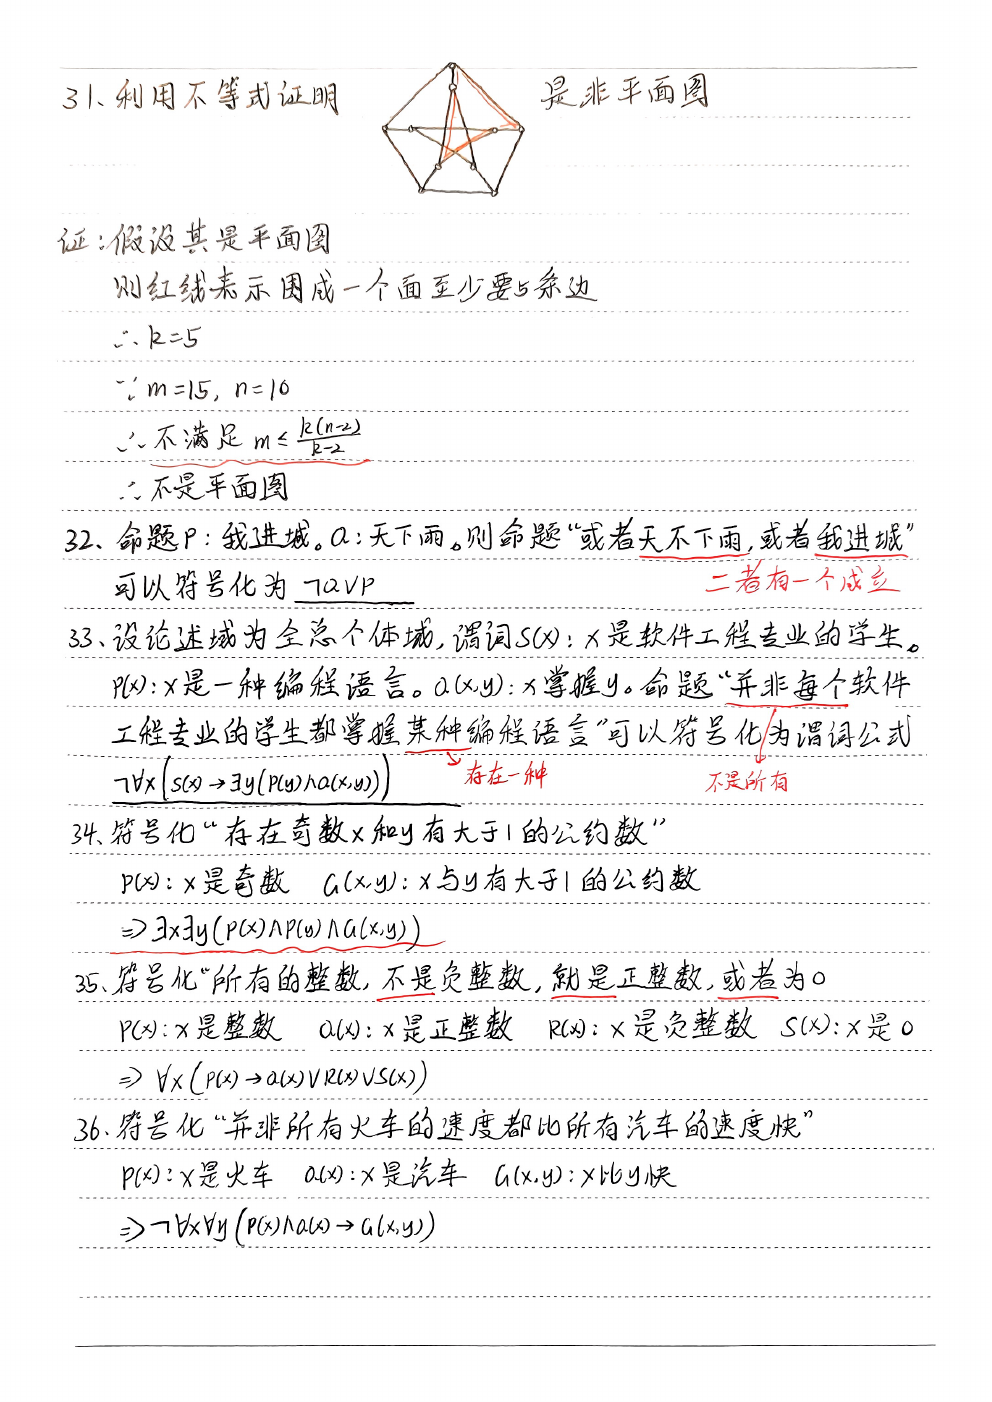 31、利用不等式证明 是非平面图
证：假设其是平面图
则红线表示围成一个面至少要5条边
∴ k=5
∵ m=15, n=10
∴ 不满足 m≤ k(n-2)/k-2
∴ 不是平面图
32、命题P：我进城。Q：天下雨。则命题“或者天不下雨,或者我进城”
可以符号化为 ¬Q∨P
二者有一个成立
33、设论述域为全总个体域,谓词S(x)：x是软件工程专业的学生。
P(x)：x是一种编程语言。Q(x,y)：x掌握y。命题“并非每个软件
工程专业的学生都掌握某种编程语言”可以符号化为谓词公式
¬∀x(S(x)→∃y(P(y)∧Q(x,y)))
存在一种
不是所有
34、符号化“存在奇数x和y有大于1的公约数”
P(x)：x是奇数 G(x,y)：x与y有大于1的公约数
⇒∃x∃y(P(x)∧P(y)∧G(x,y))
35、符号化“所有的整数,不是负整数,就是正整数,或者为0
P(x)：x是整数 Q(x)：x是正整数 R(x)：x是负整数 S(x)：x是0
⇒ ∀x(P(x)→Q(x)∨R(x)∨S(x))
36、符号化“并非所有火车的速度都比所有汽车的速度快”
P(x)：x是火车 Q(x)：x是汽车 G(x,y)：x比y快
⇒¬∀x∀y(P(x)∧Q(x)→G(x,y))